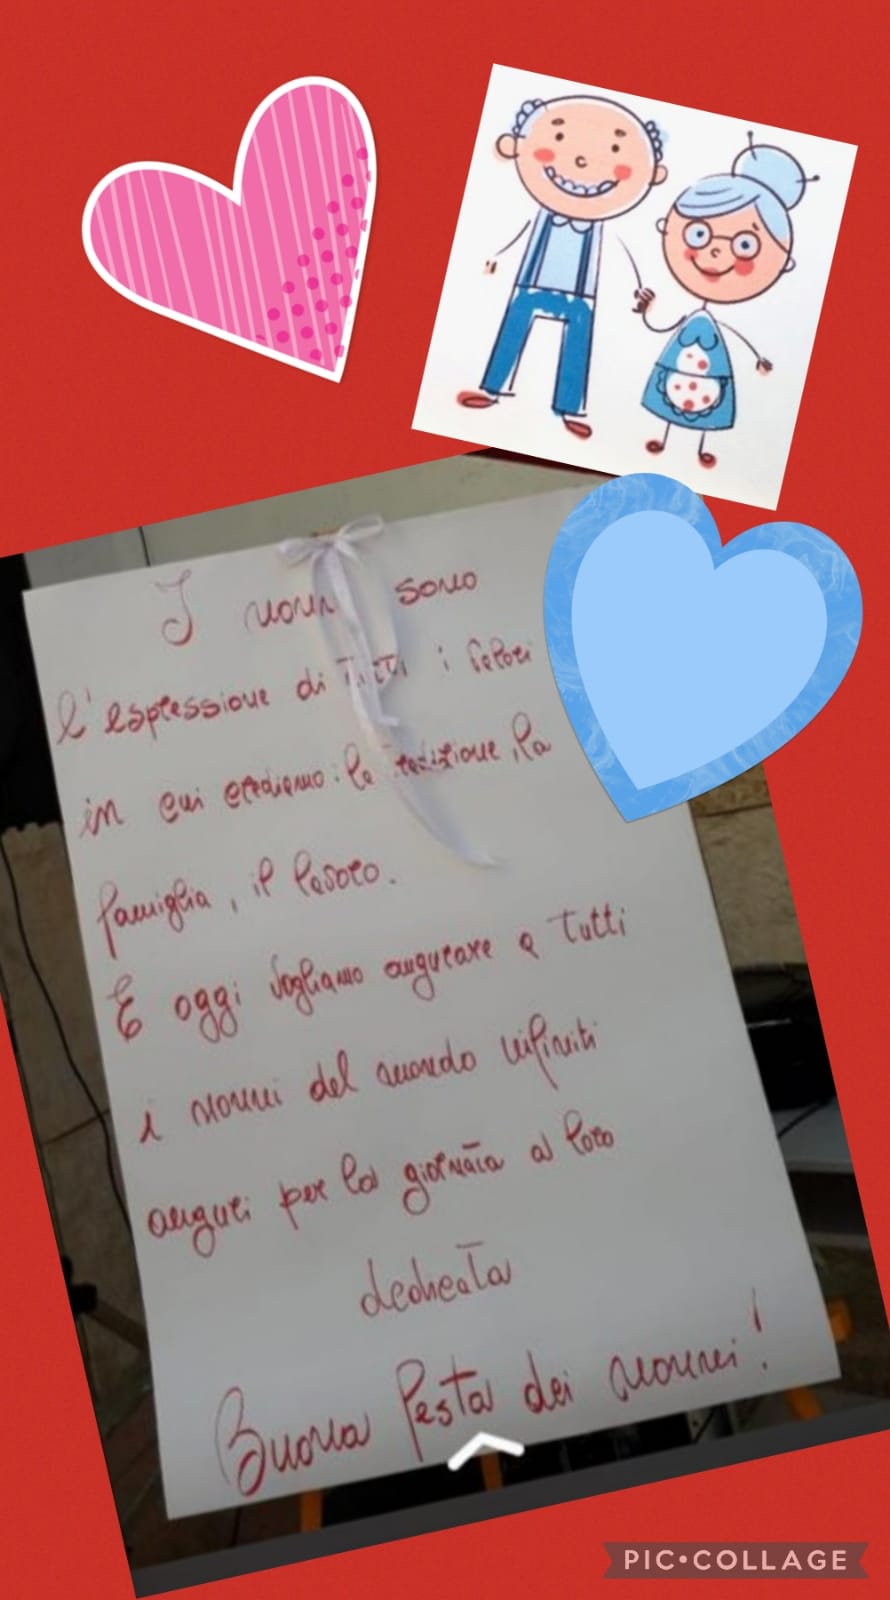 I nonni sono
l'espressione di Tutti i valori
in cui crediamo: la tradizione, la
famiglia, il lavoro.
E oggi vogliamo augurare a Tutti
i nonni del mondo infiniti
auguri per la giornata a loro
dedicata
Buona festa dei nonni!
PIC•COLLAGE